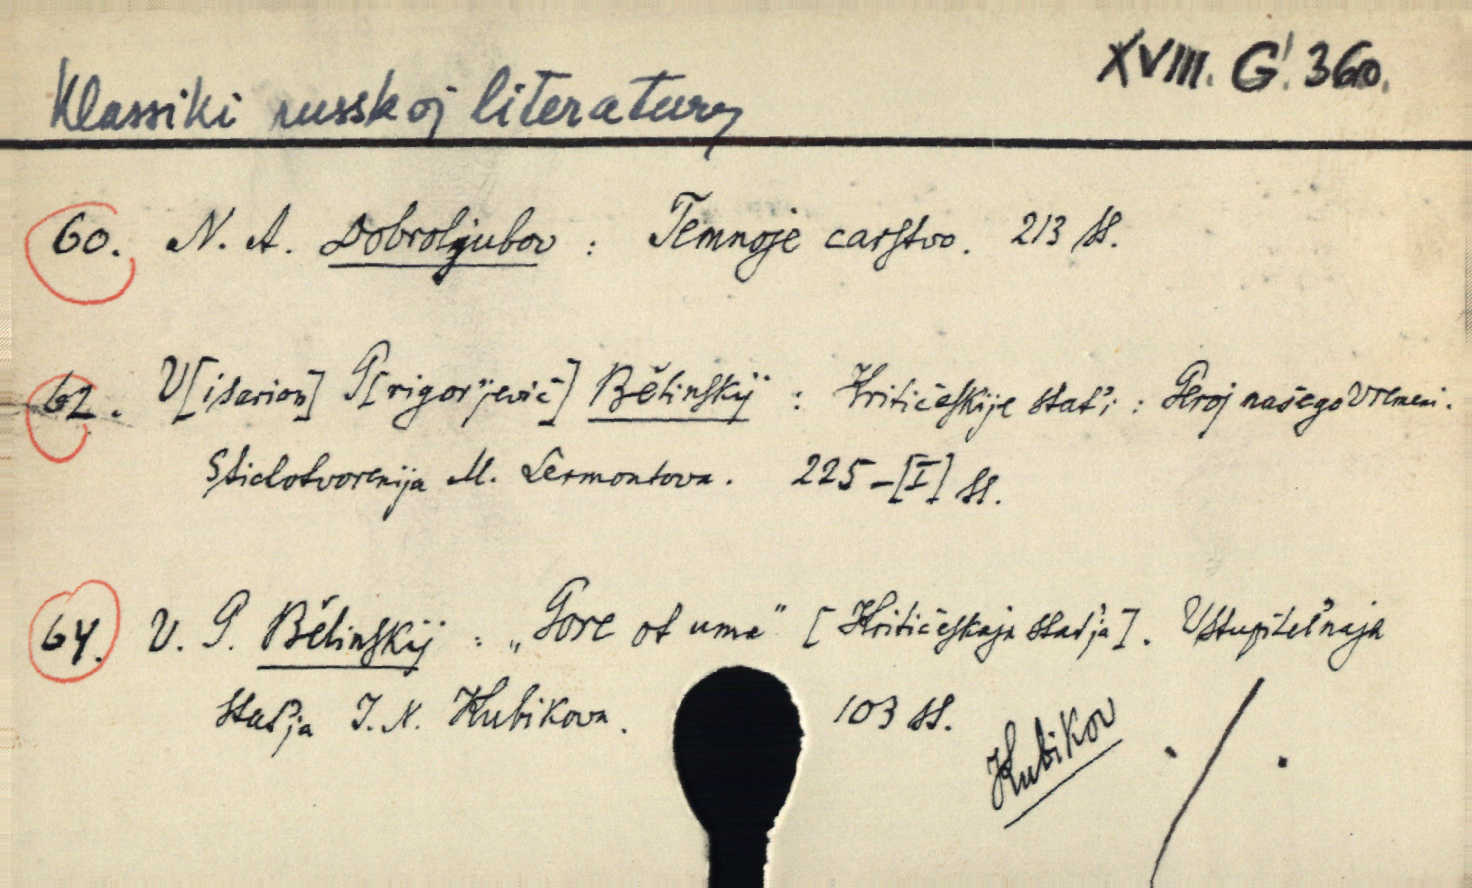 XVIII. G. 360.
Klassiki russkoj literatury
60. N. A. Dobroljubov : Temnoje carstvo. 213 ss.
62. V[isarion] G[rigor'jevič] Bělinskij : Kritičeskije stat'i : Geroj našego vremeni.
Stichotvorenija M. Lermontova. 225-[I] ss.
64. V. G. Bělinskij : „Gore ot uma" [Kritičeskaja stat'ja]. Vstupitel'naja
stat'ja I. N. Kubikova. 103 ss.
Kubikov
./.